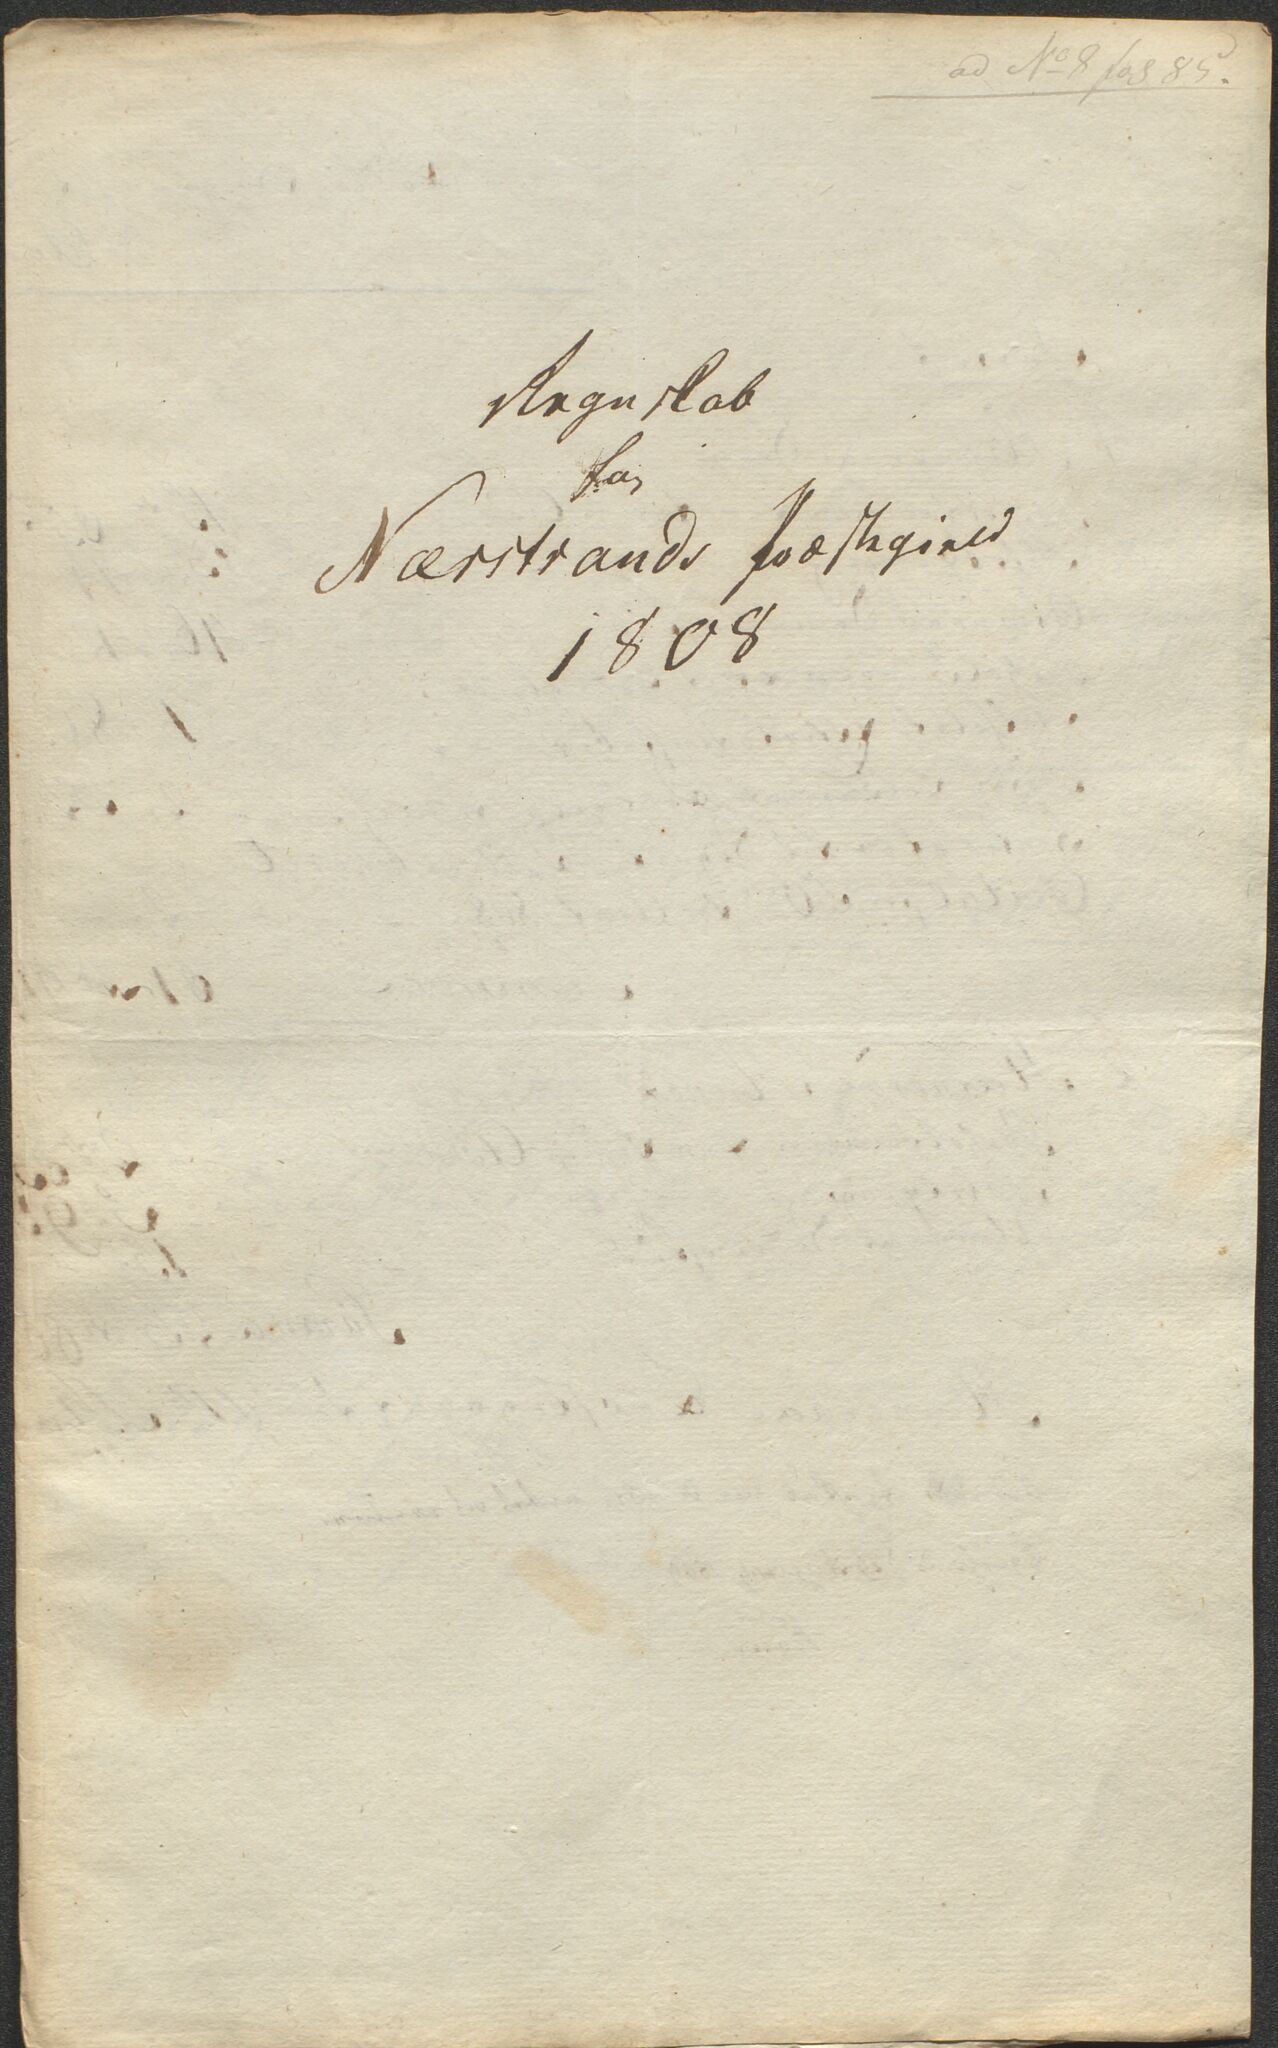 ad No 8 pag 85.
Regnskab
for
Nærstrands Præstegield
1808